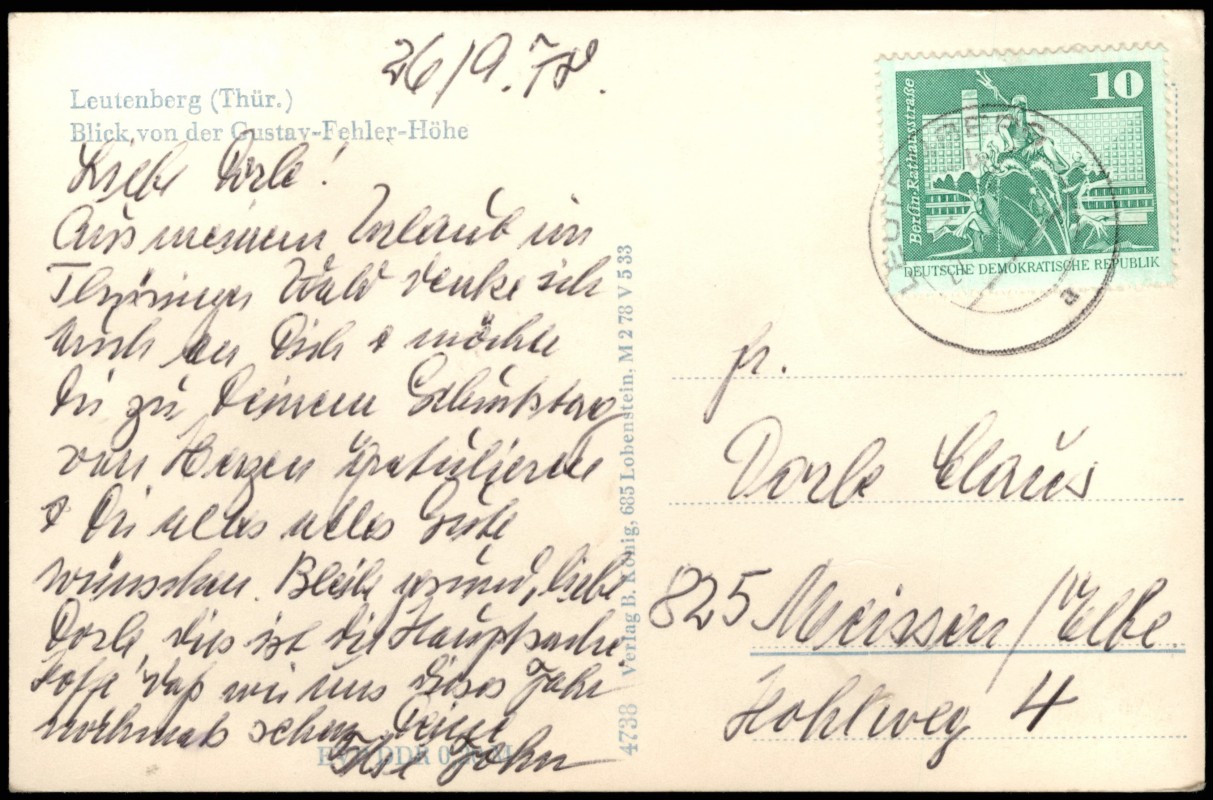 26/9.78.
Leutenberg (Thür.)
Blick von der Gustav-Fehler-Höhe
Liebe Dorle!
Aus meinem Urlaub im
Thüringer Wald denke ich
auch an Dich & möchte
Dir zu Deinem Geburtstag
von Herzen gratulieren
& Dir alles alles Gute
wünschen. Bleibe gesund, liebe
Dorle, dies ist die Hauptsache
Hoffe, daß wir uns dieses Jahr
nochmals sehen. Deine
John
EVP DDR 0
4738 Verlag B. König, 685 Lobenstein, M 2 78 V 5 33
10
Berlin-Rathausstraße
DEUTSCHE DEMOKRATISCHE REPUBLIK
LEUTENBERG
a
Fr.
Dorle Claus
825 Meissen/Elbe
Hohlweg 4